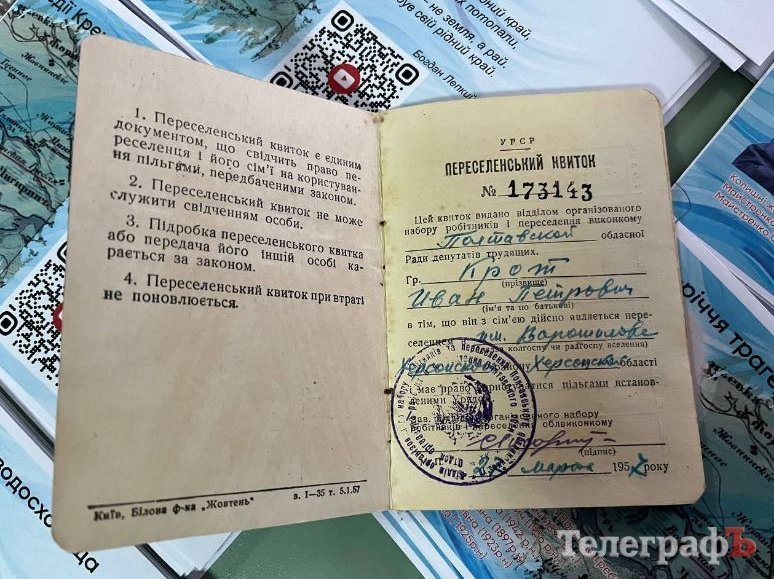 1. Переселенський квиток є єдиним
документом, що свідчить право пе-
реселенця і його сім’ї на користуван-
ня пільгами, передбаченими законом.
2. Переселенський квиток не може
служити свідченням особи.
3. Підробка переселенського квитка
або передача його іншій особі ка-
рається за законом.
4. Переселенський квиток при втраті
не поновлюється.
Київ, Білова ф-ка „Жовтень"
з. 1—35 т. 5.1.57
УРСР
ПЕРЕСЕЛЕНСЬКИЙ КВИТОК
№ 173143
Цей квиток видано відділом організованого
набору робітників і переселення виконкому
Полтавской обласної
Ради депутатів трудящих.
Гр. Крот
(прізвище)
Иван Петрович
(ім’я та по батькові)
в тім, що він з сім’єю дійсно являється пере-
селенцем им. Ворошилова
Херсонской області
має право
пільгами встанов-
леними
набору
робітників і переселення облвиконкому
(підпис)
марта 1957 року
потопали,
не земля, а рай.
свій рідний край.
Богдан Лепкий
водосхо
річчя траг
ТелеграфЪ